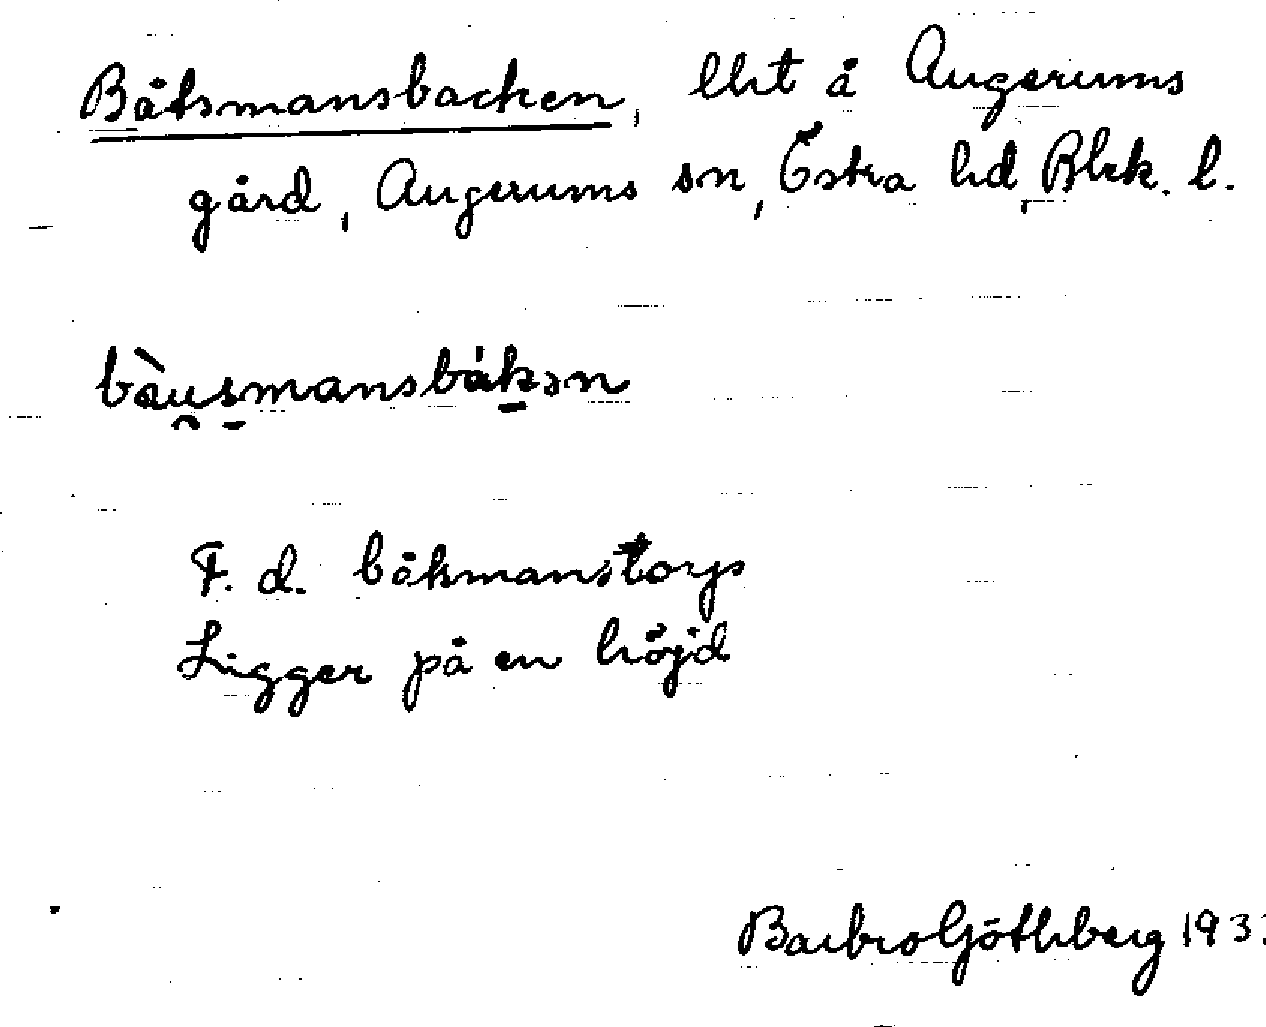 Båtsmansbacken, lht å Augerums
gård, Augerums sn, Östra hd, Blek. l.
bàu̯s̱mansbák̠ən
F. d. båtsmanstorp
Ligger på en höjd
Barbro Göthberg 193